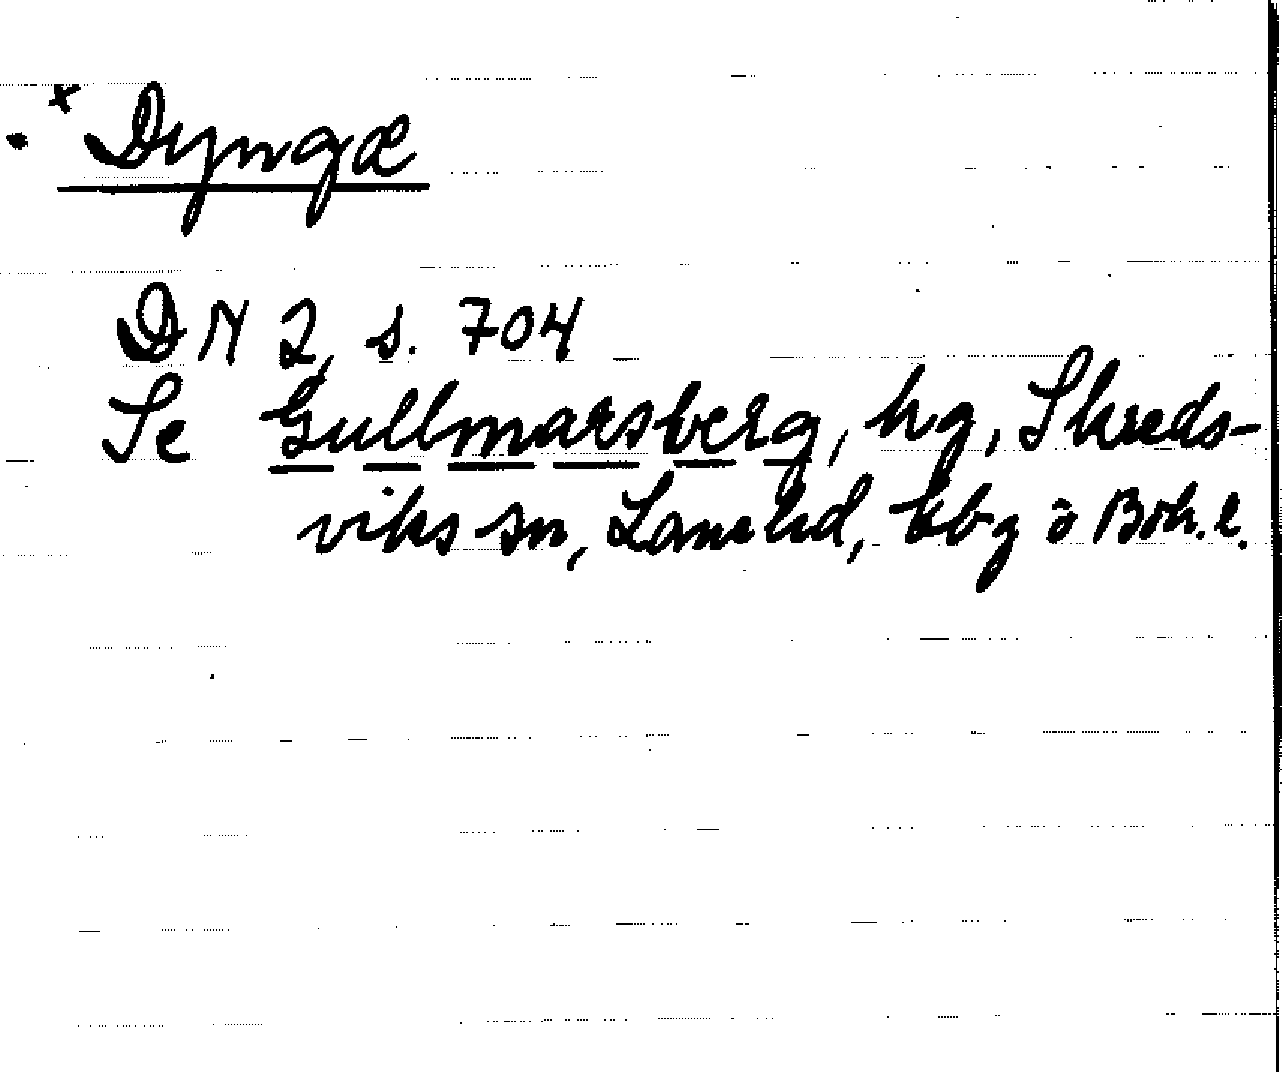 x Dyngæ
DN 2, s. 704
Se Gullmarsberg, hg, Skreds-
viks sn, Lane hd, Gbg o Boh. l.